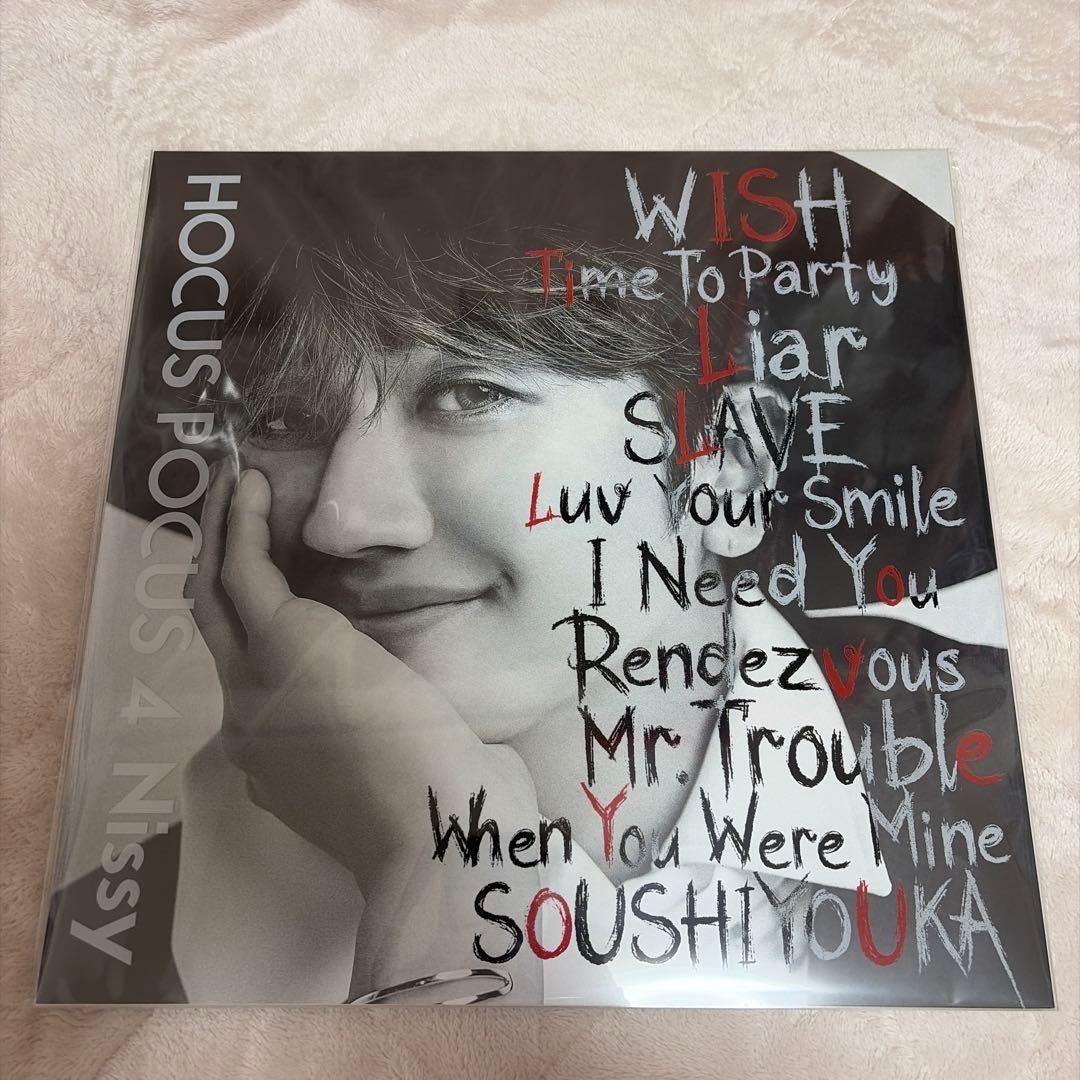 HOCUS POCUS 4 Nissy
WISH
Time To Party
Liar
SLAVE
Luv Your Smile
I Need You
Rendezvous
Mr. Trouble
When You Were Mine
SOUSHIYOUKA